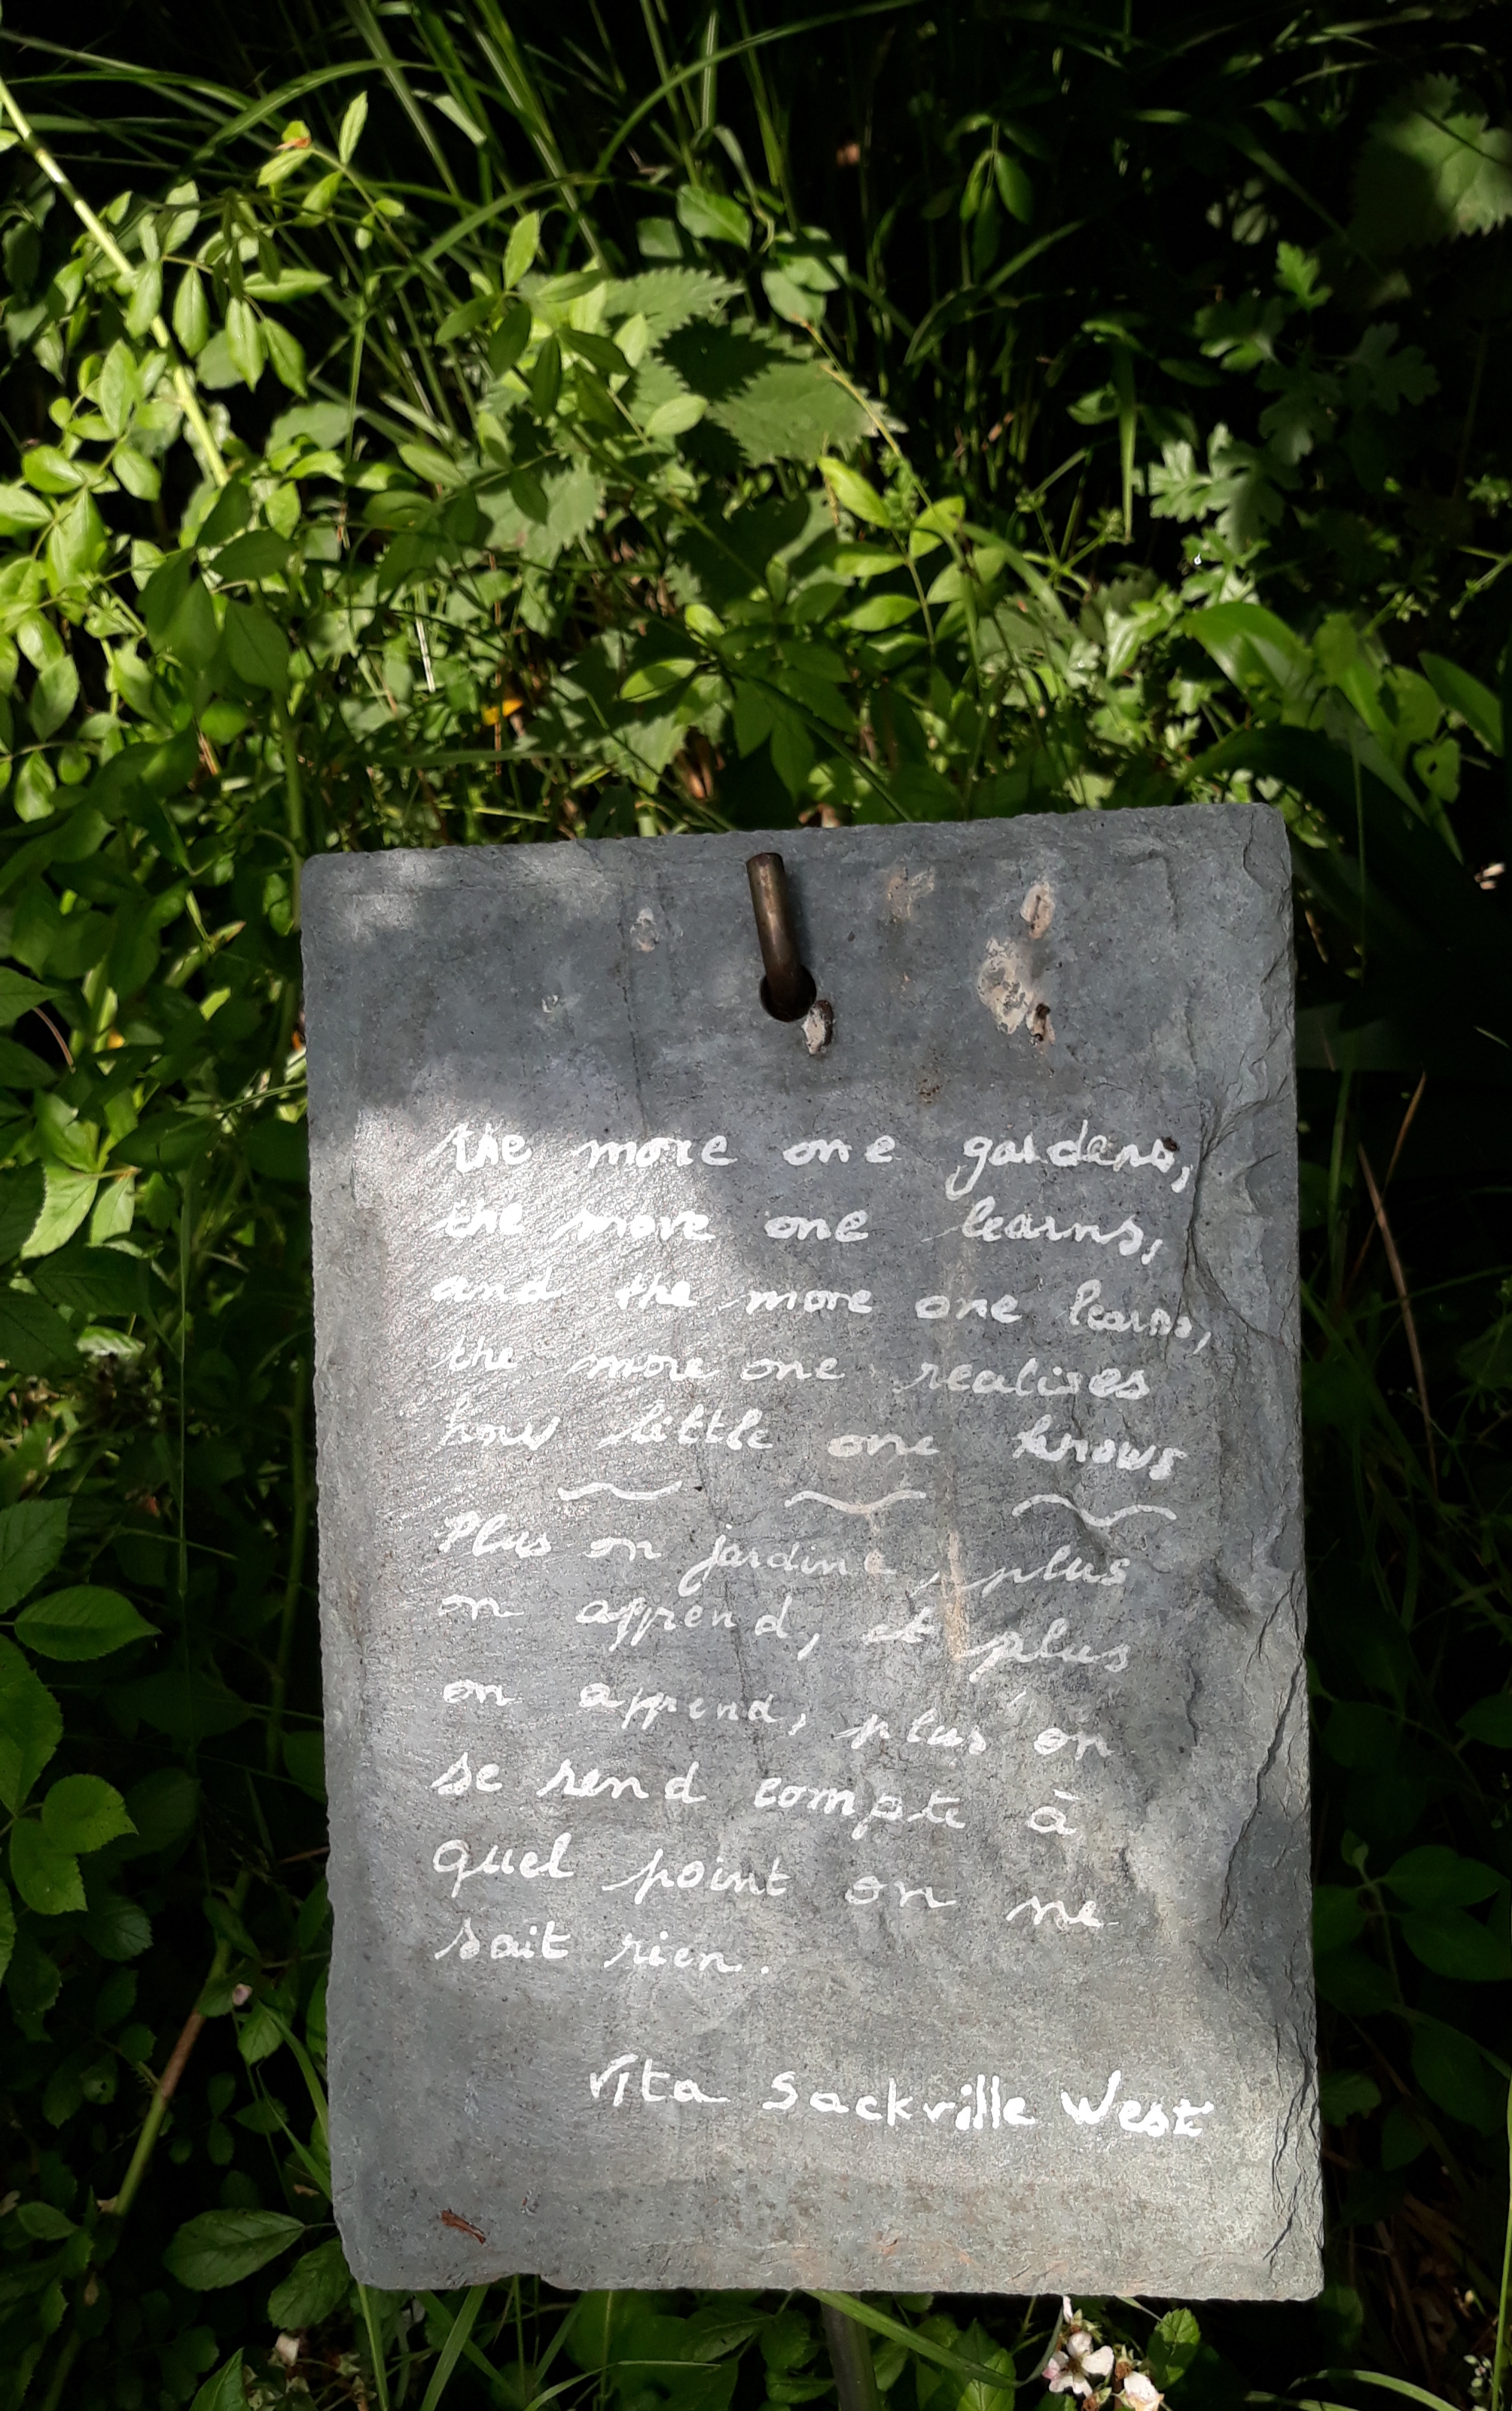 the more one gardens,
the more one learns,
and the more one learns,
the more one realises
how little one knows
Plus on jardine, plus
on apprend, et plus
on apprend, plus on
se rend compte à
quel point on ne
sait rien.
Vita Sackville West